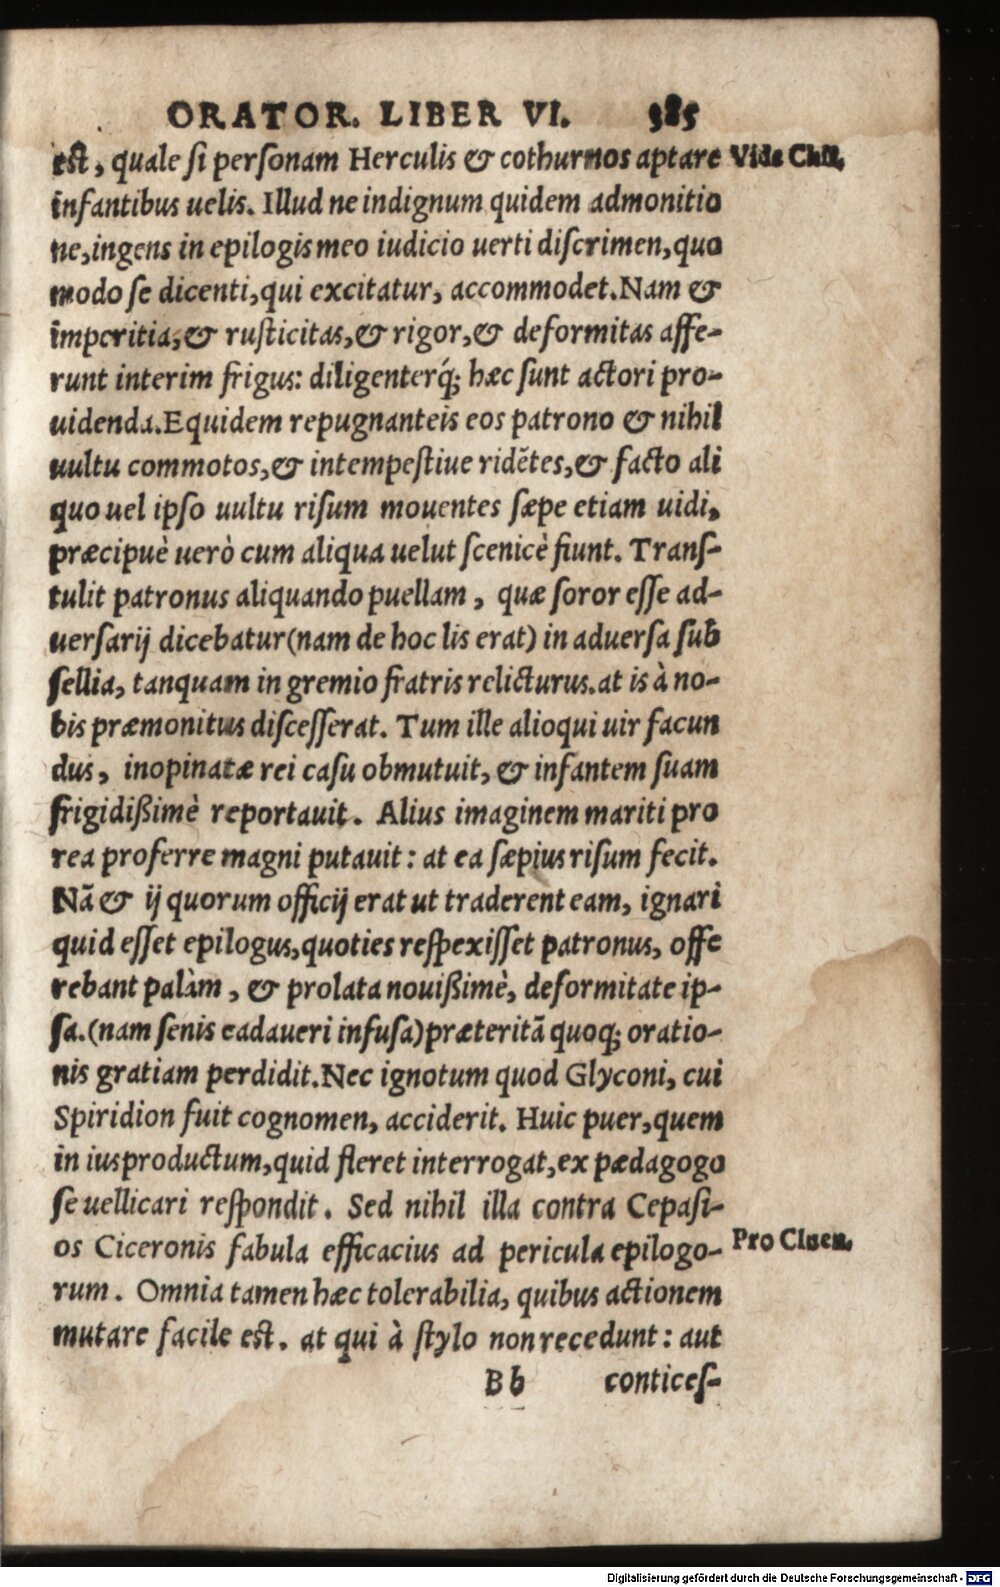 ORATOR. LIBER VI. 385
est, quale si personam Herculis & cothurnos aptare Vide Chil.
infantibus uelis. Illud ne indignum quidem admonitio
ne, ingens in epilogis meo iudicio uerti discrimen, quo
modo se dicenti, qui excitatur, accommodet. Nam &
imperitia, & rusticitas, & rigor, & deformitas affe-
runt interim frigus: diligenterq́; hæc sunt actori pro-
uidenda. Equidem repugnanteis eos patrono & nihil
uultu commotos, & intempestiue ridētes, & facto ali
quo uel ipso uultu risum mouentes sæpe etiam uidi,
præcipuè uerò cum aliqua uelut scenicè fiunt. Trans-
tulit patronus aliquando puellam, quæ soror esse ad-
uersarij dicebatur (nam de hoc lis erat) in aduersa sub
sellia, tanquam in gremio fratris relicturus. at is à no-
bis præmonitus discesserat. Tum ille alioqui uir facun
dus, inopinatæ rei casu obmutuit, & infantem suam
frigidißimè reportauit. Alius imaginem mariti pro
rea proferre magni putauit: at ea sæpius risum fecit.
Nā & ij quorum officij erat ut traderent eam, ignari
quid esset epilogus, quoties respexisset patronus, offe
rebant palàm, & prolata nouißimè, deformitate ip-
sa. (nam senis cadaueri infusa) præteritā quoq; oratio-
nis gratiam perdidit. Nec ignotum quod Glyconi, cui
Spiridion fuit cognomen, acciderit. Huic puer, quem
in ius productum, quid fleret interrogat, ex pædagogo
se uellicari respondit. Sed nihil illa contra Cepasi-
os Ciceronis fabula efficacius ad pericula epilogo- Pro Cluen.
rum. Omnia tamen hæc tolerabilia, quibus actionem
mutare facile est. at qui à stylo non recedunt: aut
Bb contices-
Digitalisierung gefördert durch die Deutsche Forschungsgemeinschaft - DFG